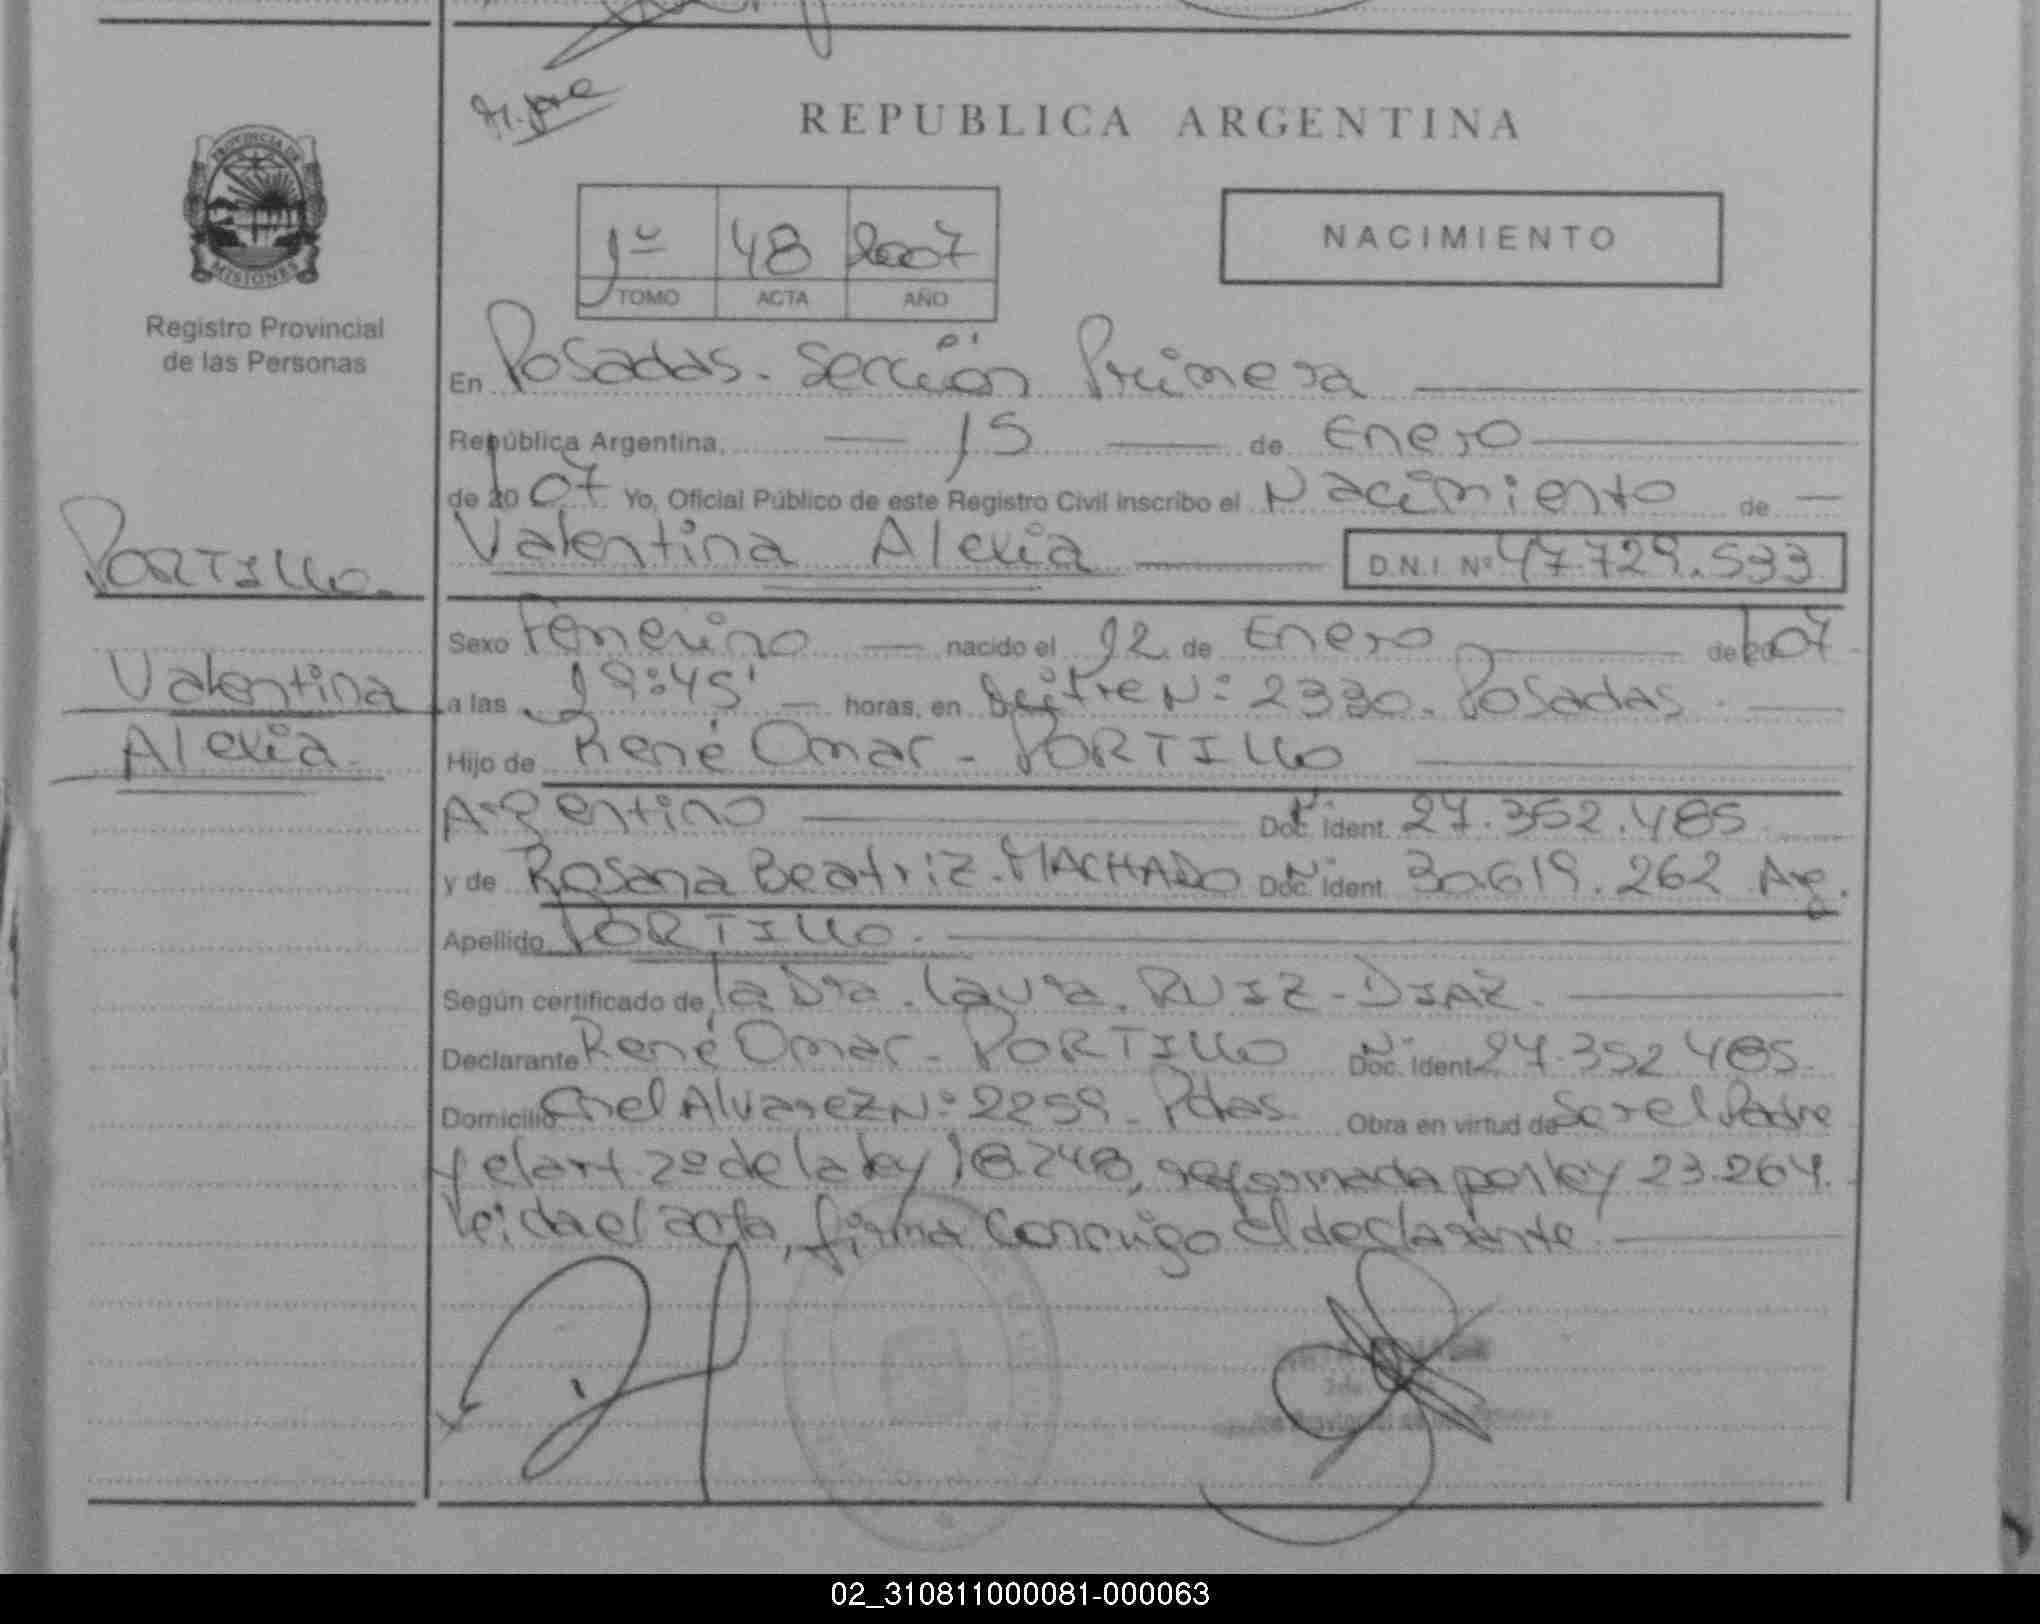 REPUBLICA ARGENTINA
PROVINCIA DE
MISIONES
Registro Provincial
de las Personas
1º 48 2007
TOMO ACTA AÑO
NACIMIENTO
En Posadas. Sección Primera
República Argentina, 15 de Enero
de 20 07 Yo, Oficial Público de este Registro Civil inscribo el Nacimiento de
Valentina Alexia D.N.I. Nº 47.729.533
PORTILLO.
Valentina
Alexia.
Sexo Femenino nacido el 12 de Enero de 2007
a las 19:45' horas, en Mitre Nº: 2330. Posadas
Hijo de René Omar - PORTILLO
Argentino Doc. Ident. 27.352.485
y de Rosana Beatriz. MACHADO Doc. Ident. 30.619.262 Arg.
Apellido PORTILLO.
Según certificado de la Dra. Laura. RUIZ - DIAZ.
Declarante René Omar - PORTILLO Doc. Ident. 27.352.485.
Domicilio Cnel Alvarez Nº: 2259 - Pdas. Obra en virtud de Ser el Padre
y el art. 2º de la ley 18.248, reformada por ley 23.264.
leida el acta, firma conmigo el declarante
02_310811000081-000063